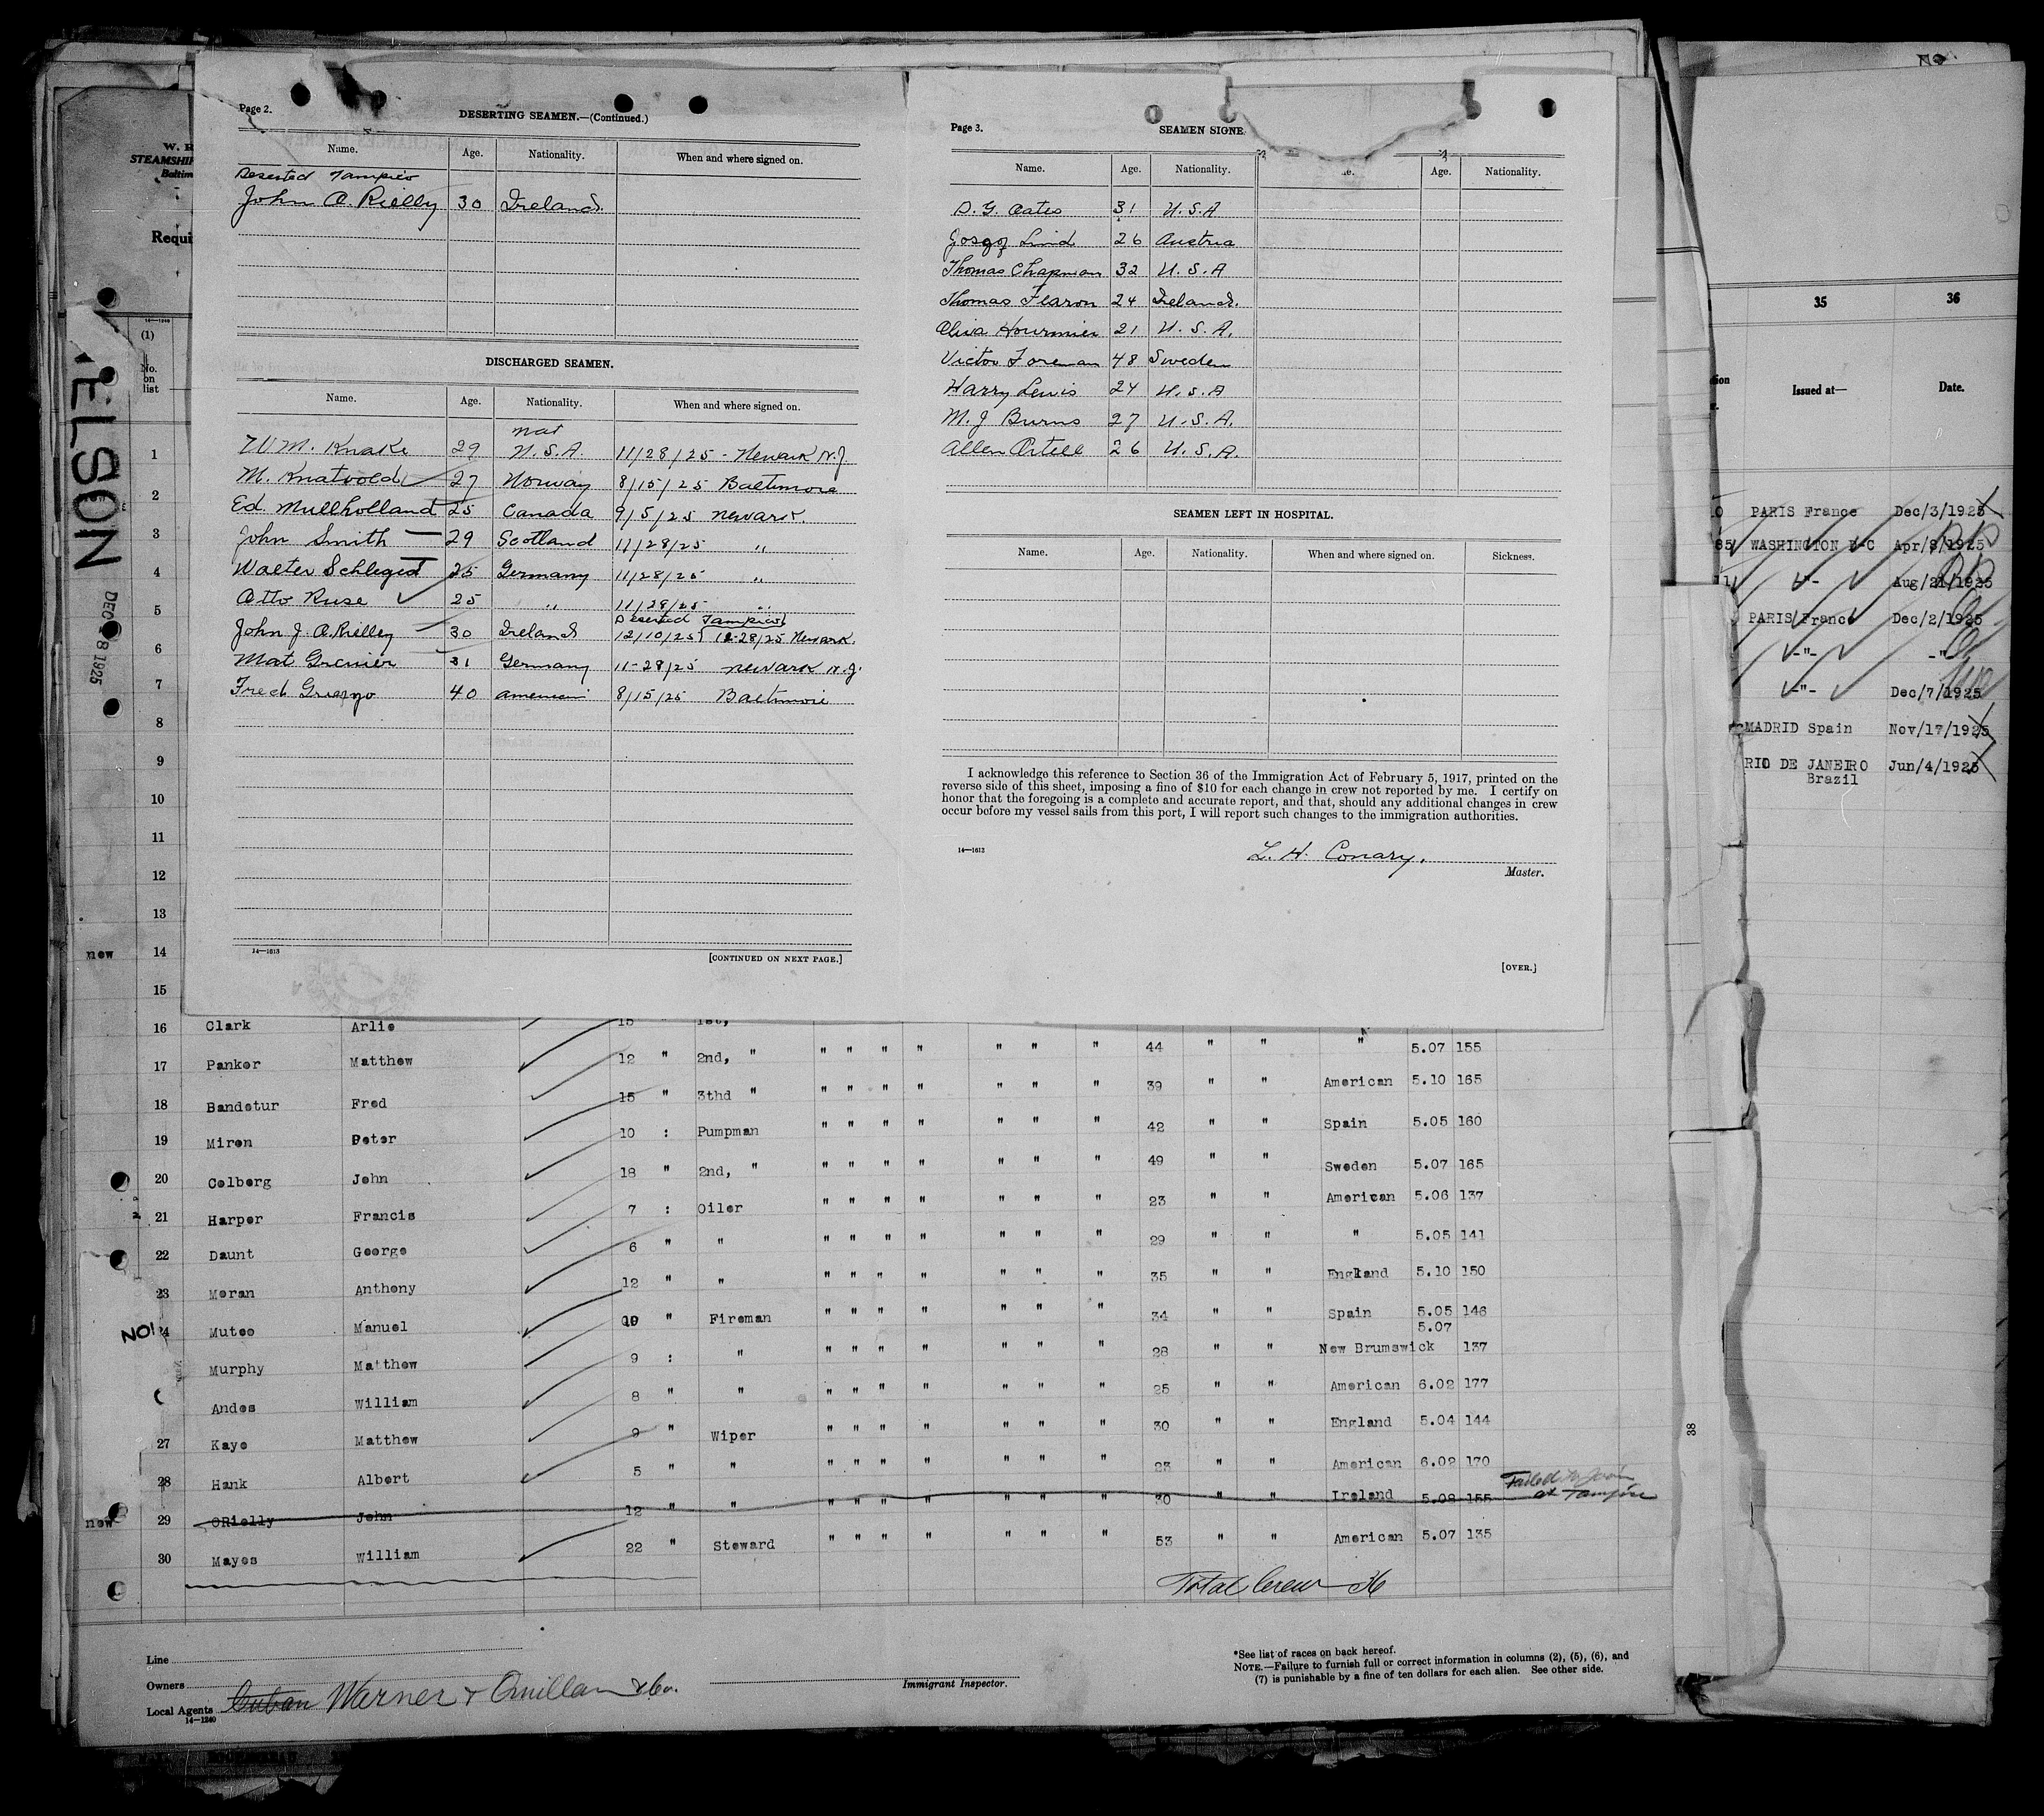 Page 2.
DESERTING SEAMEN.—(Continued.)
Name. Age. Nationality. When and where signed on.
Deserted Tampico
John O. Rielly 30 Ireland.
DISCHARGED SEAMEN.
Name. Age. Nationality. When and where signed on.
nat
W.M. Knake 29 U.S.A. 11/28/25 - Newark N.J
M. Knatvold 27 Norway 8/15/25 Baltimore
Ed. Mullholland 25 Canada 9/5/25 Newark.
John Smith 29 Scotland 11/28/25 "
Walter Schleget 25 Germany 11/28/25 "
Otto Ruse 25 " 11/28/25 "
Deserted Tampico
John J. O.Rielley 30 Ireland 12/10/25 11-28/25 Newark.
Mat Grenier 31 Germany 11-28/25 Newark N.J.
Fred 40 american 8/15/25 Baltimore
14—1613
[CONTINUED ON NEXT PAGE.]
Page 3.
SEAMEN SIGNE
Name. Age. Nationality. Age. Nationality.
D. G. Oates 31 U.S.A
Lind 26 Austria
Thomas Chapman 32 U.S.A
Thomas Fearon 24 Ireland.
21 U.S.A.
Victor Foreman 48 Sweden
Harry Lewis 24 U.S.A
M. J Burns 27 U.S.A.
Allen Ortell 26 U.S.A.
SEAMEN LEFT IN HOSPITAL.
Name. Age. Nationality. When and where signed on. Sickness.
I acknowledge this reference to Section 36 of the Immigration Act of February 5, 1917, printed on the
reverse side of this sheet, imposing a fine of $10 for each change in crew not reported by me. I certify on
honor that the foregoing is a complete and accurate report, and that, should any additional changes in crew
occur before my vessel sails from this port, I will report such changes to the immigration authorities.
14—1613
L. H. Conary.
Master.
[OVER.]
W. R
STEAMSHI
Baltim
Requi
14—1240
(1)
No.
on
list
ELSON
DEC 28 1925
1
2
3
4
5
6
7
8
9
10
11
12
13
new 14
15
16 Clark Arlie 15 1st,
17 Panker Matthew 12 " 2nd, " " " " " " " " 44 " " " 5.07 155
18 Bandetur Fred 15 " 3thd " " " " " " " " 39 " " American 5.10 165
19 Miren Peter 10 : Pumpman " " " " " " " 42 " " Spain 5.05 160
20 Colberg John 18 " 2nd, " " " " " " " " 49 " " Sweden 5.07 165
21 Harper Francis 7 : Oiler " " " " " " " 23 " " American 5.06 137
22 Daunt George 6 " " " " " " " " " 29 " " " 5.05 141
23 Meran Anthony 12 " " " " " " " " " 35 " " England 5.10 150
24 Muteo Manuel 10 " Fireman " " " " " " " 34 " " Spain 5.05 146
5.07
Murphy Matthew 9 : " " " " " " " " 28 " " New Brumswick 137
Andes William 8 " " " " " " " " " 25 " " American 6.02 177
27 Kaye Matthew 9 " Wiper " " " " " " " 30 " " England 5.04 144
28 Hank Albert 5 " " " " " " " " " 23 " " American 6.02 170
Failed to Join
at Tampico
new 29 ORielly John 12 " " " " " " " " " 30 " " Ireland 5.08 155
30 Mayes William 22 " Steward " " " " " " " 53 " " American 5.07 135
Total Crew 36
NO!
Line
Owners
Local Agents Cuban Warner & Quillan & Co.
14—1240
Immigrant Inspector.
*See list of races on back hereof.
NOTE.—Failure to furnish full or correct information in columns (2), (5), (6), and
(7) is punishable by a fine of ten dollars for each alien. See other side.
38
35 36
Issued at— Date.
0 PARIS France Dec/3/1925
85 WASHINGTON D-C Apr/8/1925
11 -"- Aug/21/1925
PARIS France Dec/2/1925
-"- -"-
-"- Dec/7/1925
MADRID Spain Nov/17/1925
RIO DE JANEIRO Jun/4/1925
Brazil